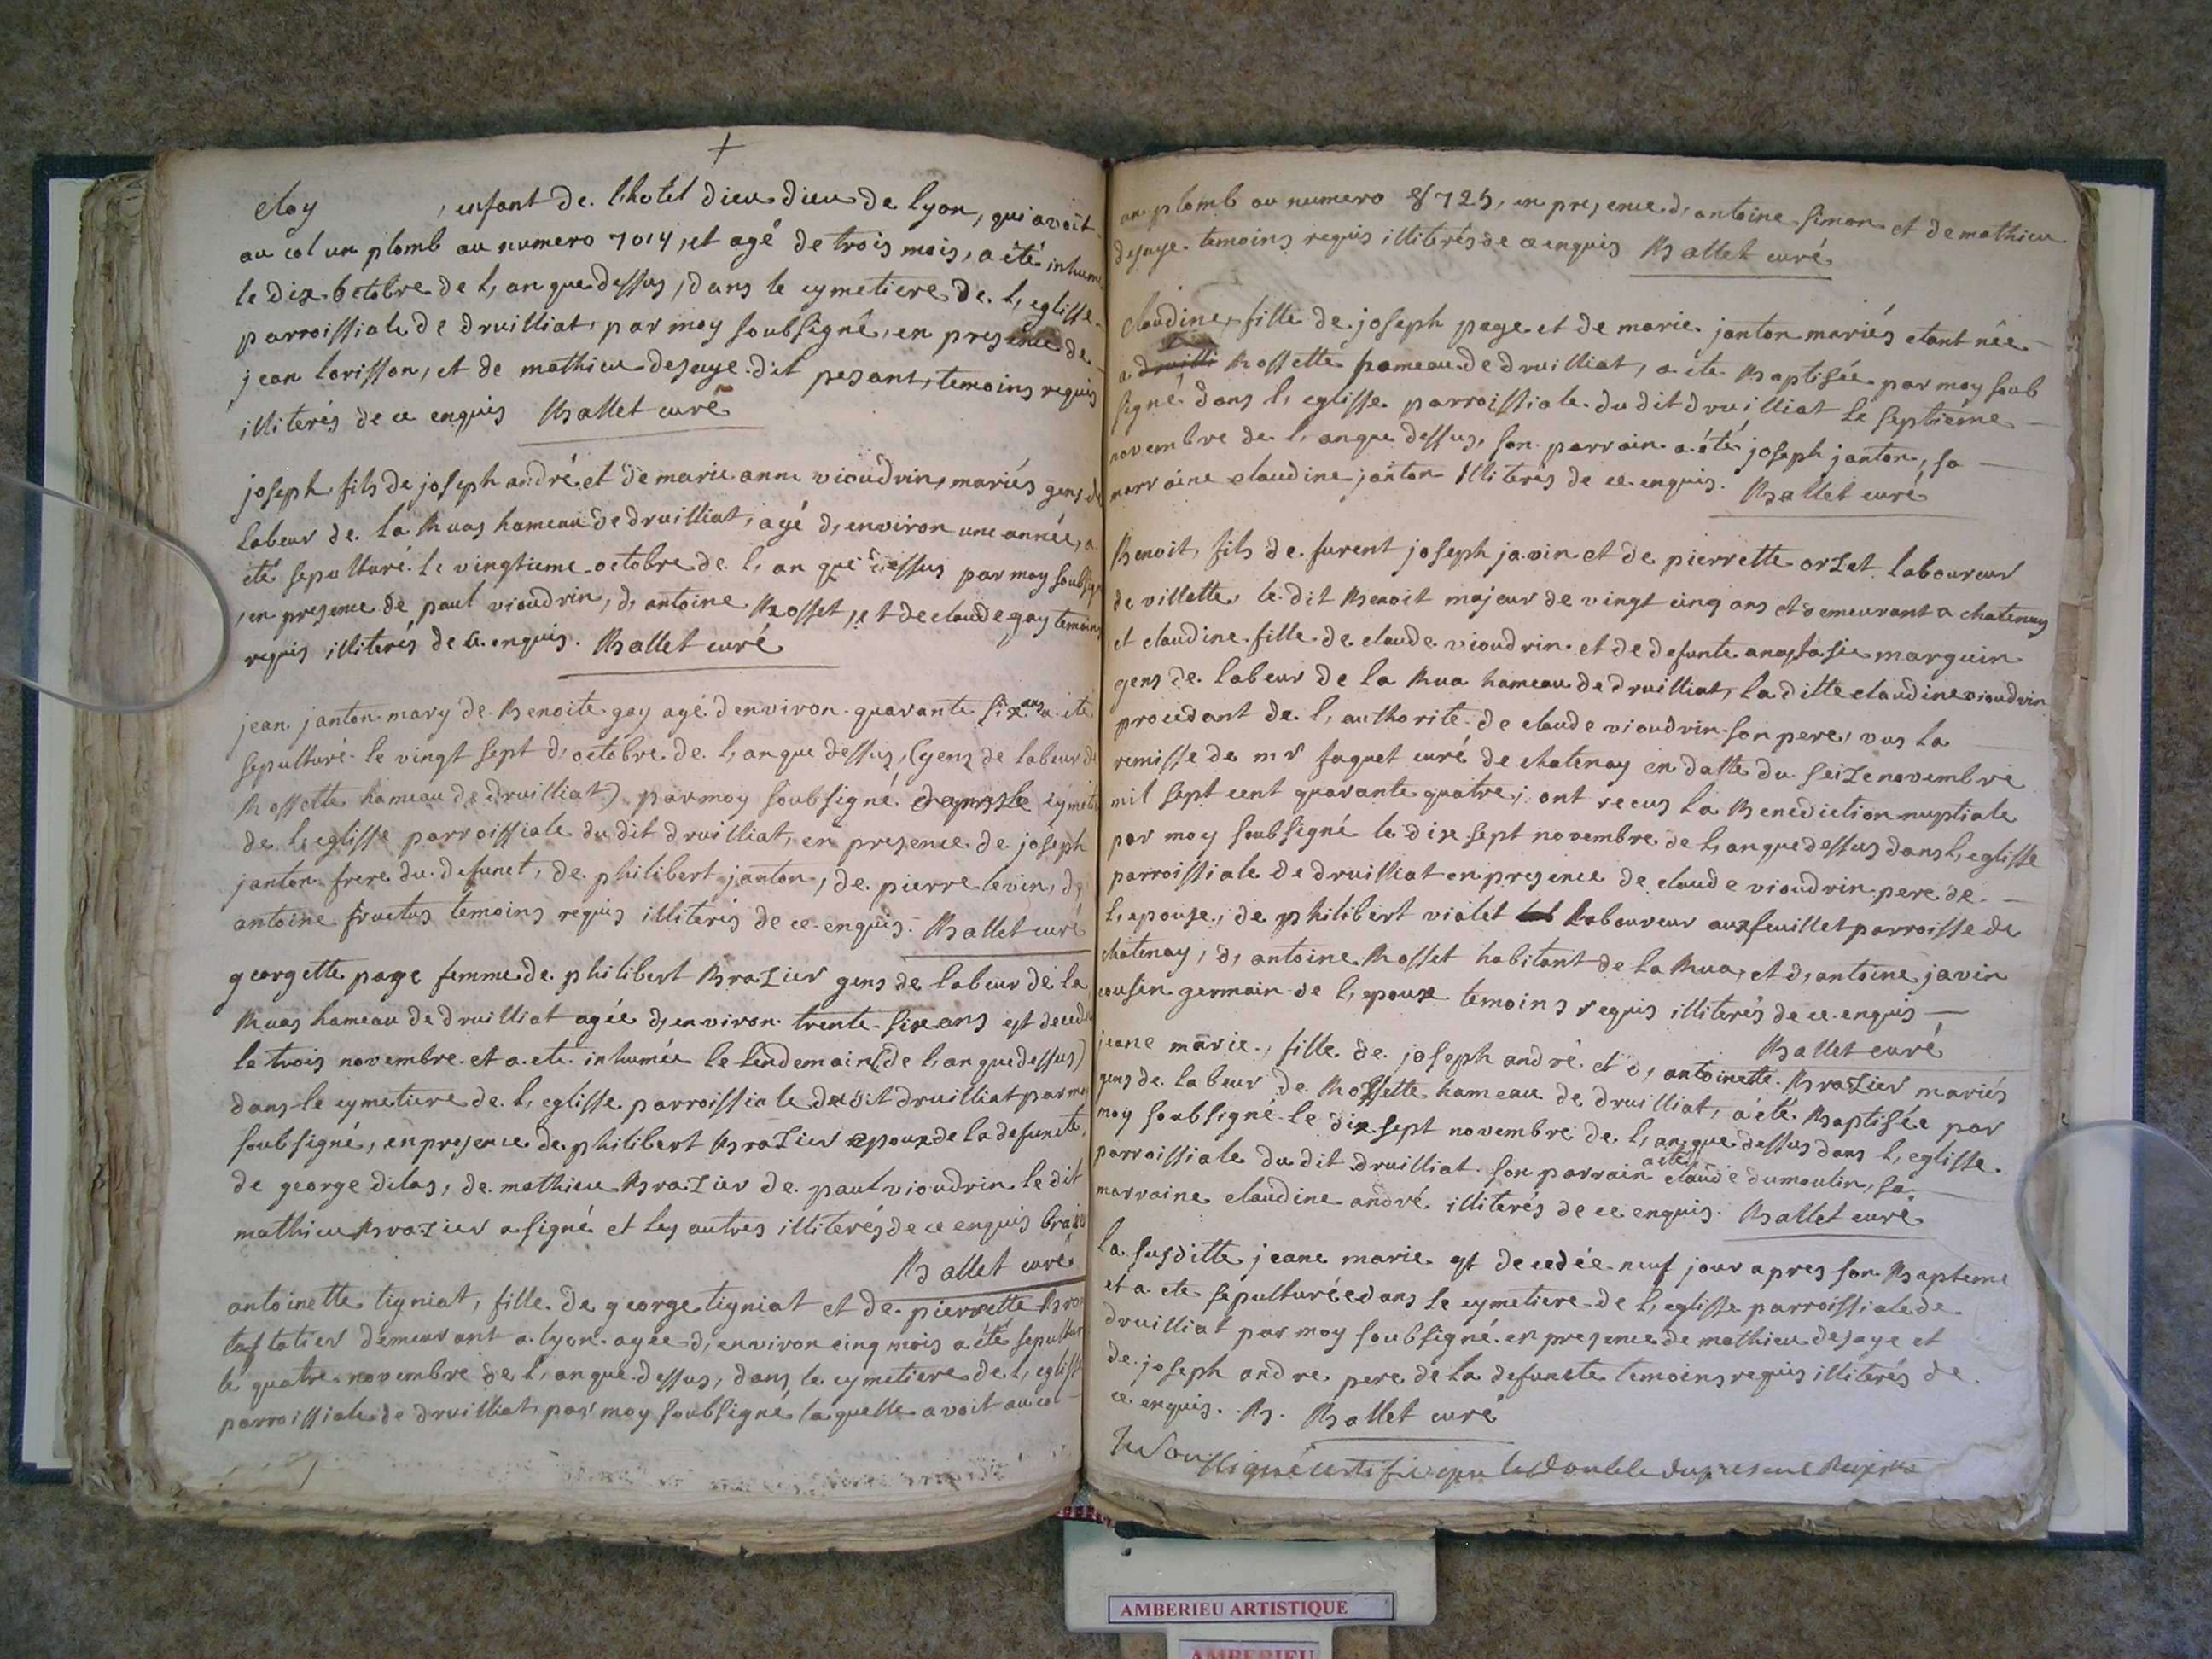 +
eloy , enfant de l,hotel dieu dieu de lyon, qui avoit
au col un plomb au numero 7014, et agé de trois mois, a été inhumé
le dix octobre de l, an que dessus, dans le cymetiere de l, eglisse
parroissiale de druilliat, par moy soubsigné, en presence de
jean lorisson, et de mathieu desaye dit pesant, temoins requis
illiterés de ce enquis Ballet curé
joseph fils de joseph andré et de marie anne vioudrin, mariés gens de
labeur de la Ruas hameau de druilliat, agé d, environ une année, a
été sepulturé le vingtieme octobre de l, an que dessus par moy soubsigné
, en presence de paul vioudrin, d, antoine Rosset, et de claude gay temoins
requis illiterés de ce enquis. Ballet curé
jean janton mary de Benoite gay agé d environ quarante six ans a été
sepulturé le vingt sept d, octobre de l, an que dessus, (gens de labeur de
Rossette hameau de druilliat) par moy soubsigné le cymeti
de l, eglisse parroissiale du dit druilliat, en presence de joseph
janton frere du defunct, de philibert janton, de pierre levin, d,
antoine fructus temoins requis illiterés de ce enquis. Ballet curé
georgette page femme de philibert BraZier gens de labeur de la
Ruas hameau de druilliat agée d, environ trente six ans est decedé
le trois novembre et a ete inhumée le lendemain (de l, an que dessus)
dans le cymetiere de l, eglisse parroissiale du dit druilliat par moy
soubsigné, en presence de philibert BraZier epoux de la defuncte,
de george dilas, de mathieu BraZier de paul vioudrin le dit
mathieu BraZier a signé et les autres illiterés de ce enquis
Ballet curé
antoinette tigniat, fille de george tigniat et de pierrette
demeurant a lyon agée d, environ cinq mois a été sepultur
le quatre novembre de l, an que dessus, dans le cymetiere de l, eglisse
parroissiale de druilliat par moy soubsigné laquelle avoit au col
un plomb au numero 8725, en presence d, antoine simon et de mathieu
desaye temoins requis illiterés de ce enquis Ballet curé
claudine, fille de joseph page et de marie janton mariés etant née
a druilli Rossette hameau de druilliat, a été Baptisée par moy soub
signé dans l, eglisse parroissiale du dit druilliat le septieme
novembre de l, an que dessus, son parrain a été joseph janton, sa
marraine claudine janton illiterés de ce enquis. Ballet curé
Benoit, fils de furent joseph javin et de pierrette orZet laboureur
de villette, le dit Benoit majeur de vingt cinq ans et demeurant a chatenay
et claudine fille de claude vioudrin et de defunte anastasie marguin
gens de labeur de la Rua hameau de druilliat, la ditte claudine vioudrin
procedant de l, authorité de claude vioudrin son pere, vus la
remisse de mr faquet curé de chatenay en datte du seize novembre
mil sept cent quarante quatre; ont recus la Benediction nuptiale
par moy soubsigné le dix sept novembre de l, an que dessus dans l, eglisse
parroissiale de druilliat en presence de claude vioudrin pere de
l, epouse, de philibert violet laboureur aux feuillet parroisse de
chatenay, d, antoine Rosset habitant de la Rua, et d, antoine javin
cousin germain de l, epoux temoins requis illiterés de ce enquis
Ballet curé
jeane marie, fille de joseph andré et d, antoinette BraZier mariés
gens de labeur de Rossette hameau de druilliat, a été Baptisée par
moy soubsigné le dix sept novembre de l, an que dessus dans l, eglisse
parroissiale du dit druilliat son parrain a été claude dumoulin, sa
marraine claudine andré illiterés de ce enquis. Ballet curé
la susditte jeane marie est decedée neuf jour apres son Bapteme
et a ete sepulturée dans le cymetiere de l, eglisse parroissiale de
druilliat par moy soubsigné en presence de mathieu desaye et
de joseph andre pere de la defuncte temoins requis illiterés de
ce enquis. B. Ballet curé
Je Soussigné certifie que le double du present Registre
AMBERIEU ARTISTIQUE
AMBERIEU